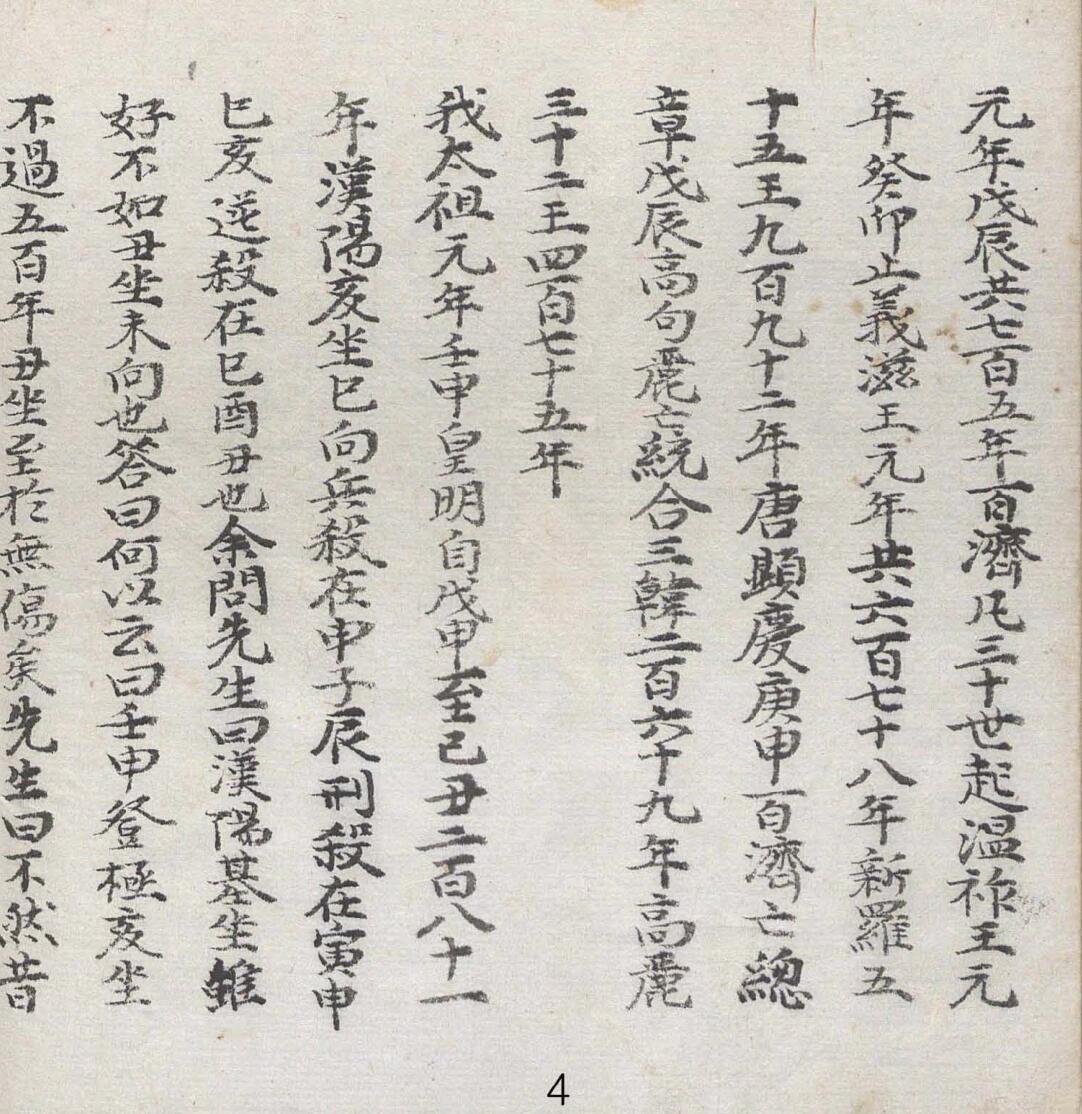 元年戊辰共七百五年百濟凡三十世起温祚王元
年癸卯止義滋王元年共六百七十八年新羅五
十五王九百九十二年唐顯慶庚申百濟亡總
章戊辰高句麗亡統合三韓二百六十九年高麗
三十二王四百七十五年
我太祖元年壬申皇明自戊申至己丑二百八十一
年漢陽亥坐巳向兵殺在申子辰刑殺在寅申
巳亥逆殺在巳酉丑也余問先生曰漢陽基坐雖
好不如丑坐未向也答曰何以云曰壬申登極亥坐
不過五百年丑坐至於無傷矣先生曰不然昔
4